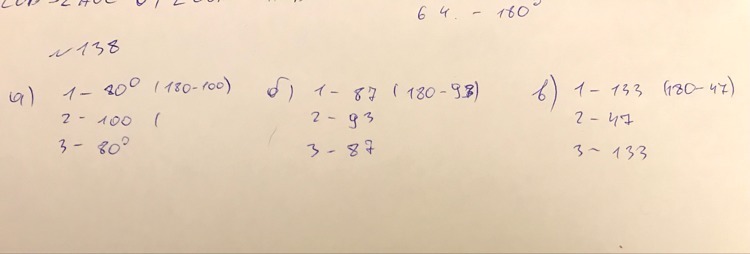 6 ч. - 180°
№138
а) 1 - 80° (180-100) б) 1 - 87 (180-93) в) 1 - 133 (180-47)
2 - 100 ( 2 - 93 2 - 47
3 - 80° 3 - 87 3 - 133